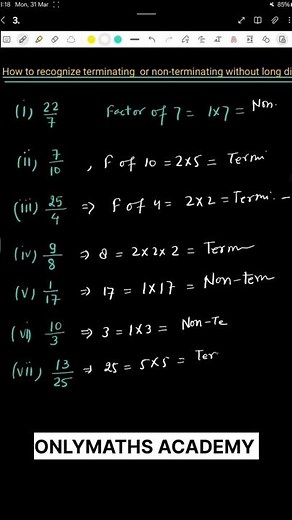 :18 Mon, 31 Mar 85%
3.
How to recognize terminating or non-terminating without long di
(i) 22/7 Factor of 7 = 1x7 = Non.
(ii) 7/10 , F of 10 = 2x5 = Termi
(iii) 25/4 => F of 4 = 2x2 = Termi.-
(iv) 9/8 => 8 = 2x2x2 = Term
(v) 1/17 => 17 = 1x17 = Non-tem
(vi) 10/3 => 3 = 1x3 = Non-Te
(vii) 13/25 => 25 = 5x5 = Ter
ONLYMATHS ACADEMY